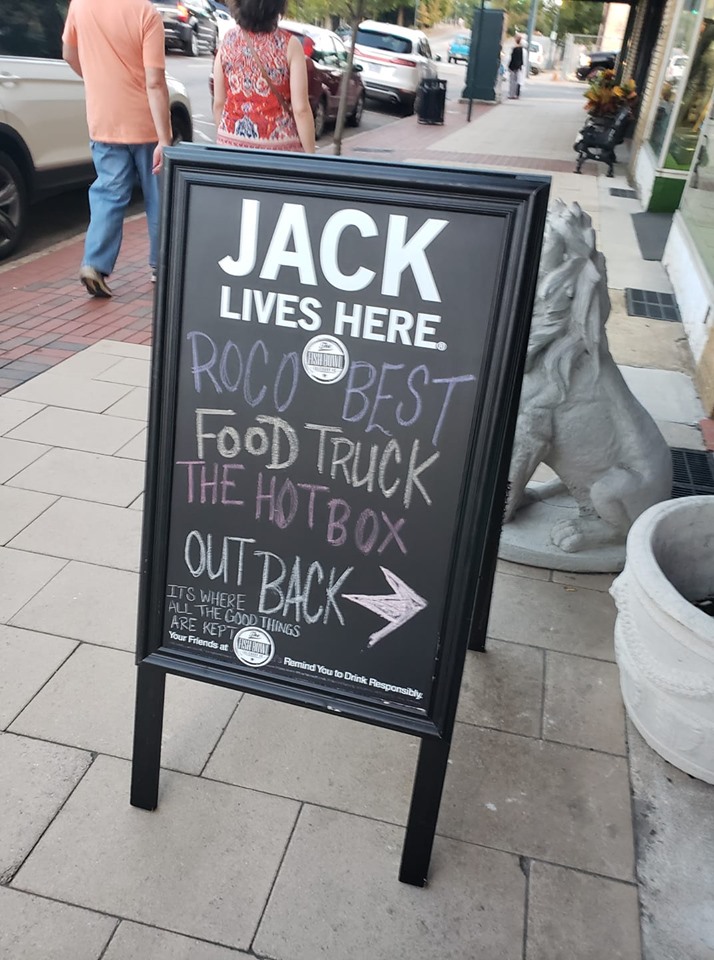 JACK
LIVES HERE®
The
FISH BOWL
ROCO BEST
FOOD TRUCK
THE HOT BOX
OUT BACK
ITS WHERE
ALL THE GOOD THINGS
ARE KEPT
Your Friends at
The
FISH BOWL
Remind You to Drink Responsibly.